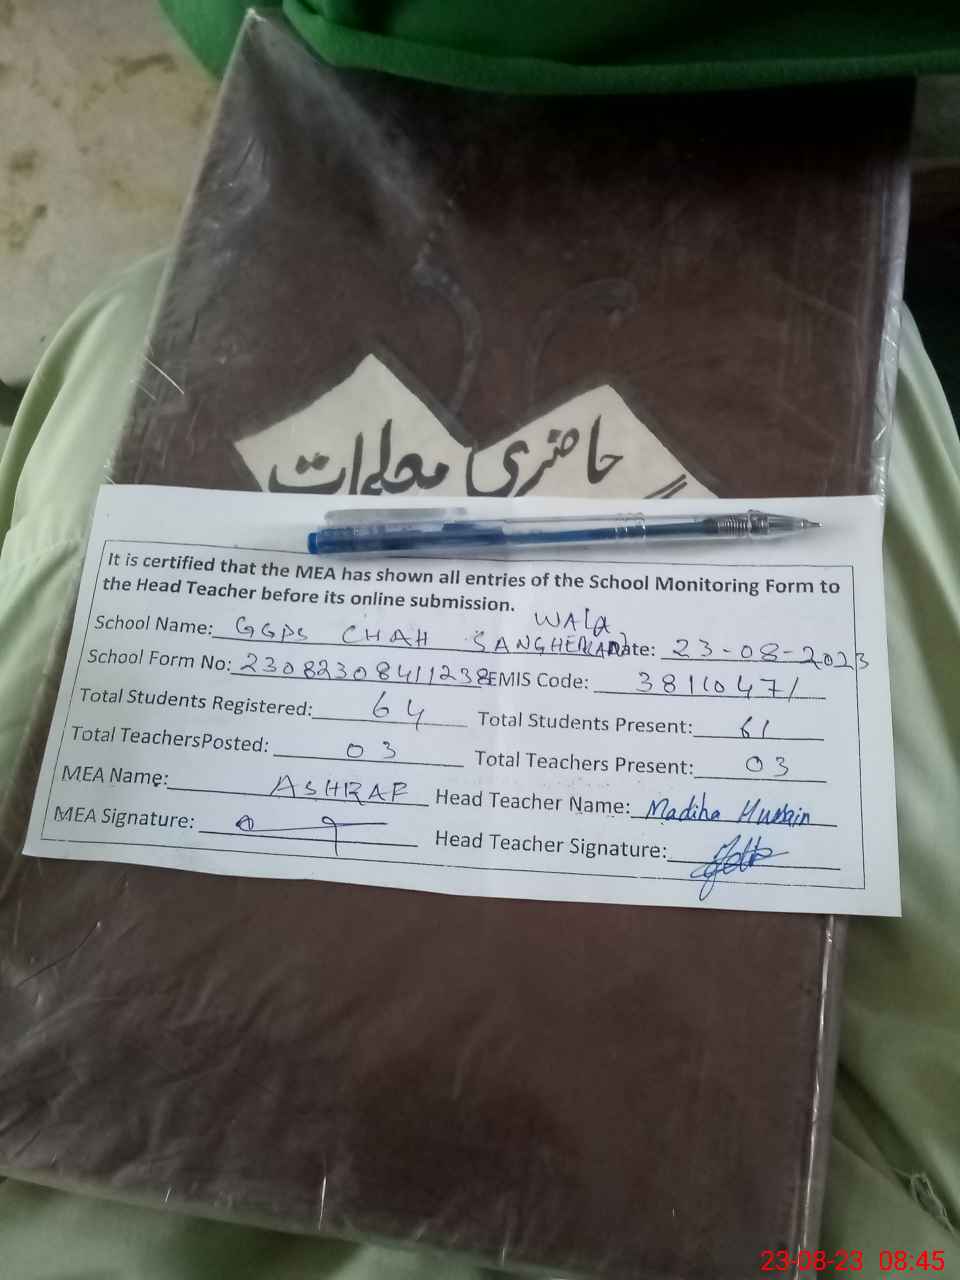 حاضری معلمات
It is certified that the MEA has shown all entries of the School Monitoring Form to
the Head Teacher before its online submission.
WALA
School Name: GGPS CHAH Date: 23-08-2023
School Form No: 230823084111238 EMIS Code: 38110471
Total Students Registered: 64 Total Students Present: 61
Total TeachersPosted: 03 Total Teachers Present: 03
MEA Name: ASHRAF Head Teacher Name: Madiha Hussain
MEA Signature: Head Teacher Signature:
23-08-23 08:45